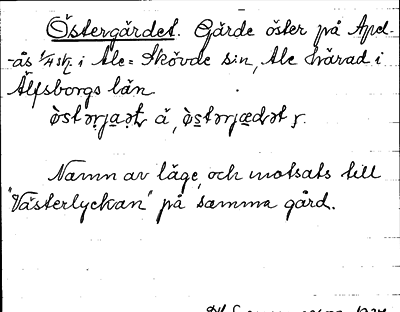 Östergärdet. Gärde öster på Apel-
-ås 1/4 sk i Ale-Skövde sin, Ale härad i
Älfsborgs län
Namn av läge, och motsats till
"Västerlyckan" på samma gård.